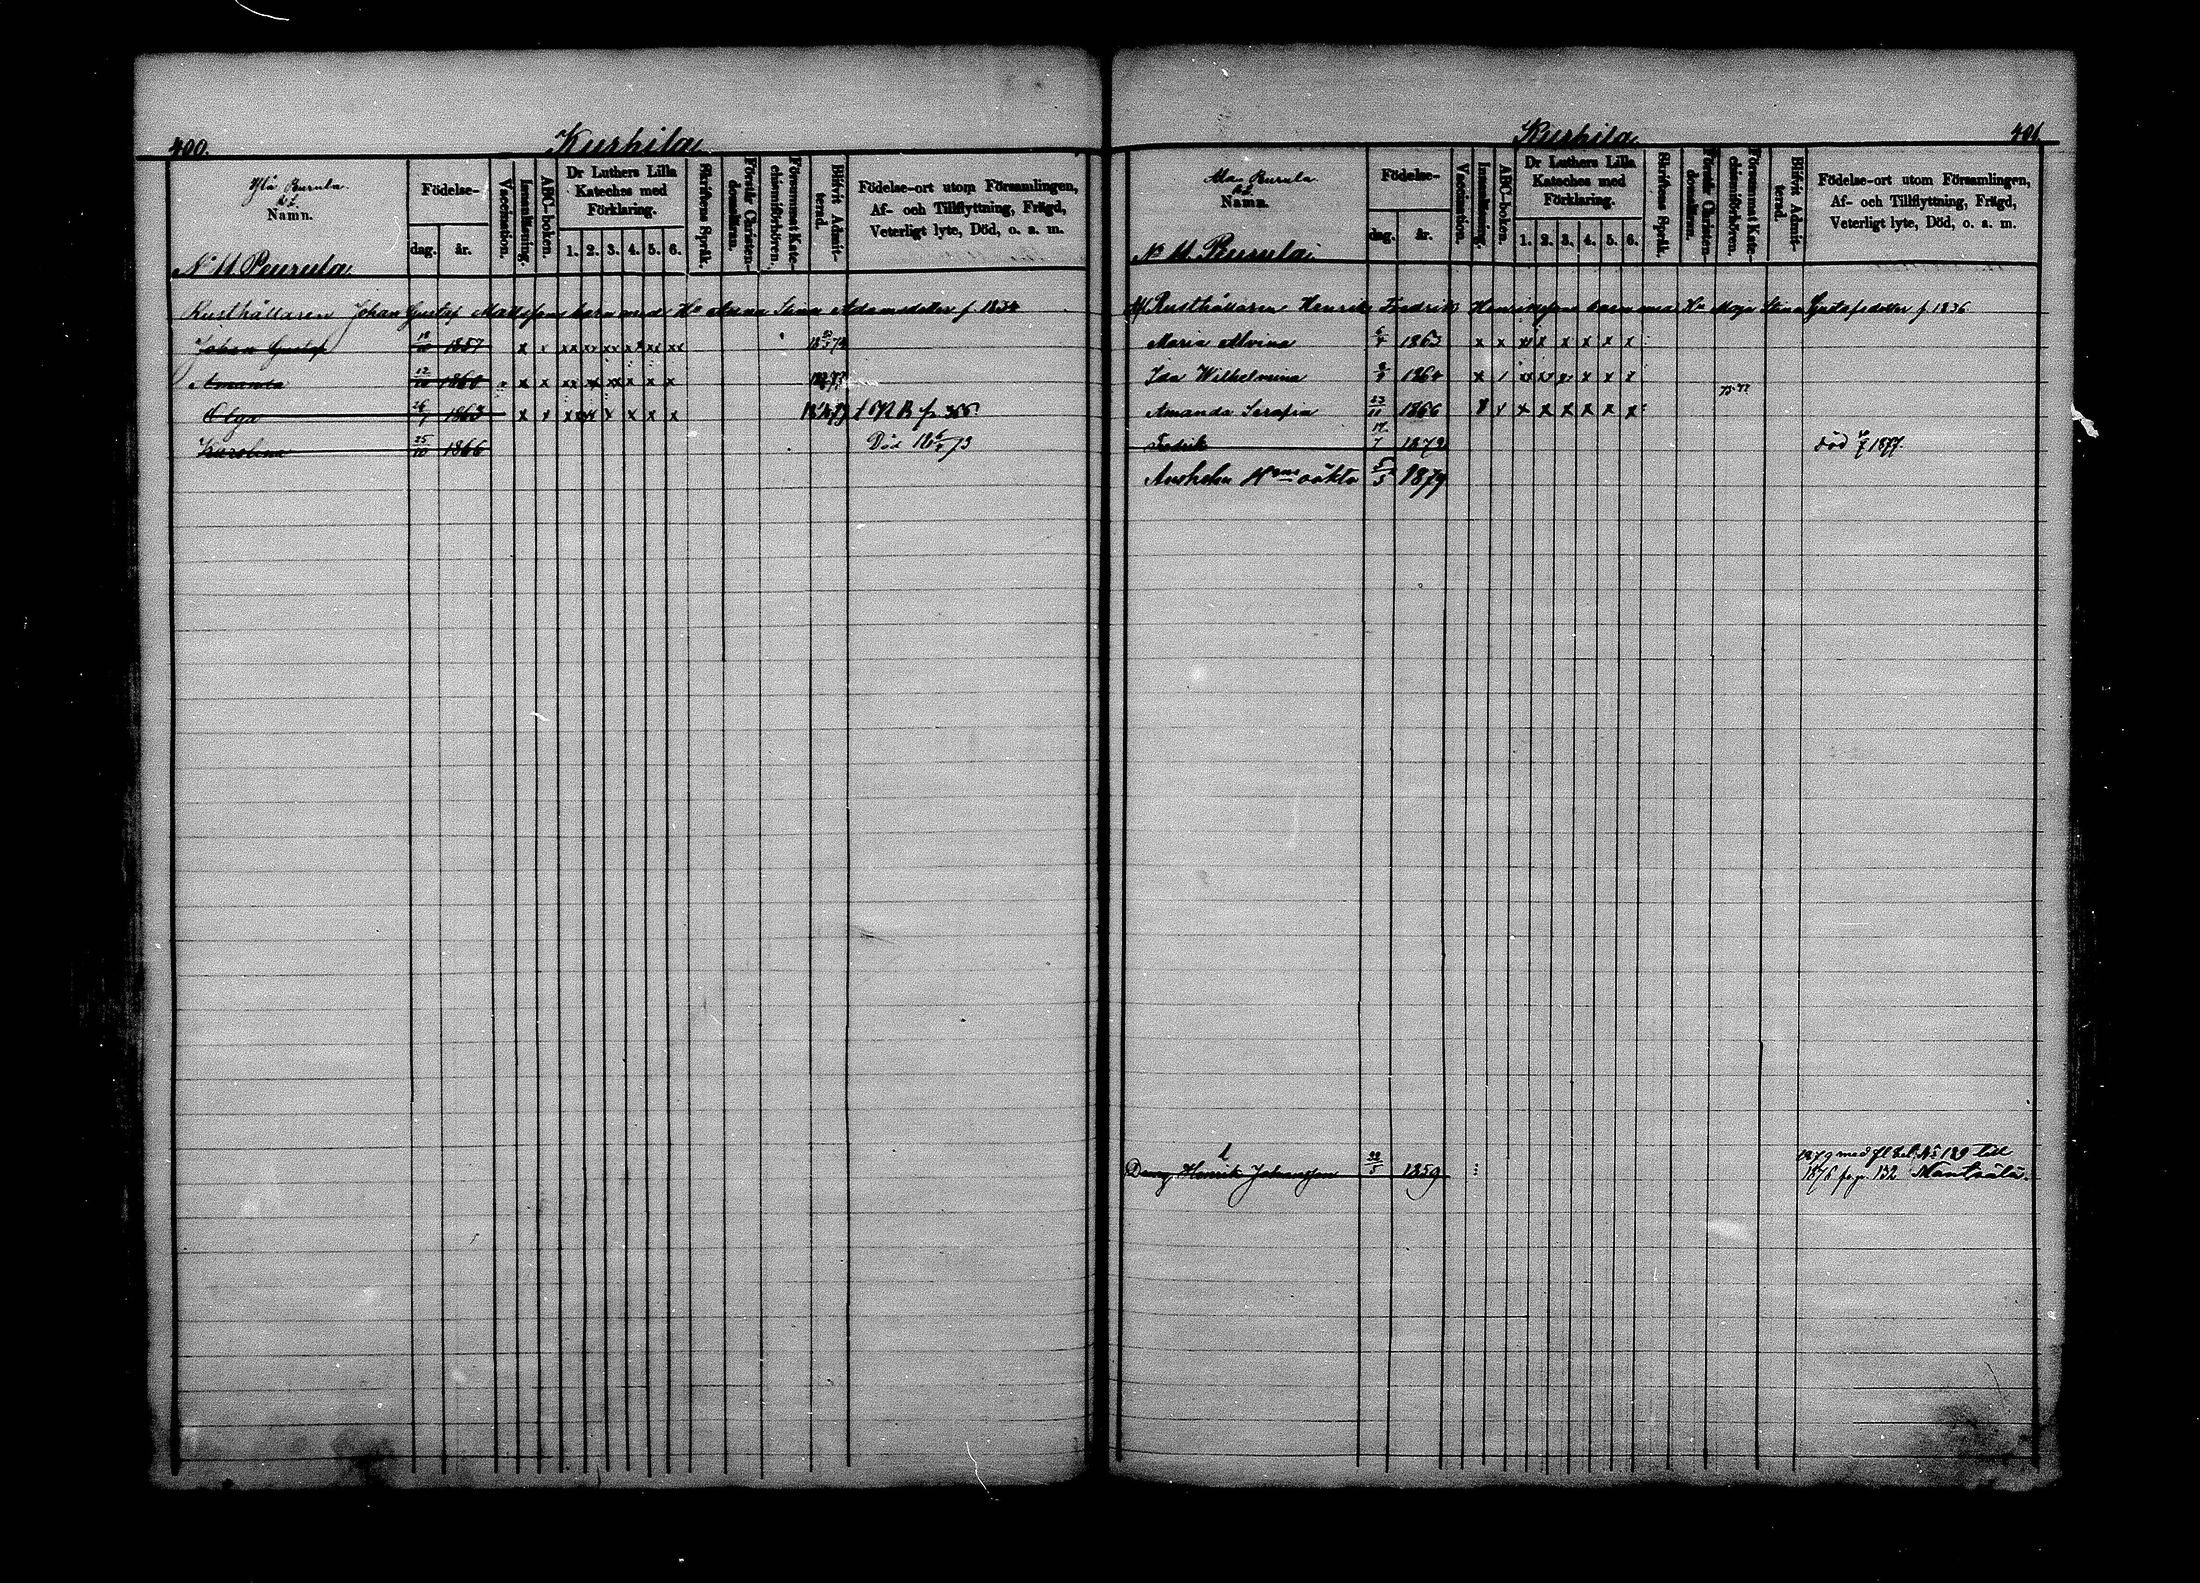 400.
Kurhila
Ylä Purula
Namn.
Födelse-
dag. år.
Vaccination.
Innanläsning.
ABC-boken.
Dr Luthers Lilla
Kateches med
Förklaring.
1. 2. 3. 4. 5. 6.
Skriftens Språk.
Förstår Christen-
domsläran.
Försummat Kate-
chismiförhören.
Blifvit Admit-
terad.
Födelse-ort utom Församlingen,
Af- och Tillflyttning, Frägd,
Veterligt lyte, Död, o. a. m.
No 11 Peurula
Rusthållaren Johan Gustaf Mattssons barn med Hu Anna Stina Adamsdotter f. 1834
Johan Gustaf 1857 x x xx xx xx xx xx xx
Amanda 12/10 1860 x x xx xx xx x x x
Olga 26/7 1863 x x xx xx x x x x
Karolina 25/10 1866 Död
401.
Kurhila
Ala Purula
Namn.
Födelse-
dag. år.
Vaccination.
Innanläsning.
ABC-boken.
Dr Luthers Lilla
Kateches med
Förklaring.
1. 2. 3. 4. 5. 6.
Skriftens Språk.
Förstår Christen-
domsläran.
Försummat Kate-
chismiförhören.
Blifvit Admit-
terad.
Födelse-ort utom Församlingen,
Af- och Tillflyttning, Frägd,
Veterligt lyte, Död, o. a. m.
No 11 Purula
Rusthållaren Henrik Fredrik Henrikssons barn med Hu Maja Stina Gustafsdotter f. 1836
Maria Alvina 6/4 1863 x x xx x x x x x
Ida Wilhelmina 1864 x x xx xx x x x x
75-77
Amanda Serafia 23/11 1866 x x x x x x x x
Fredrik 17/7 1872 död 1877.
oäkta 5/5 1879
Dreng Henrik Johansson 22/5 1859
1879 med fl. bet. No 129 till
1876 pag. 132 Mäntsälä.